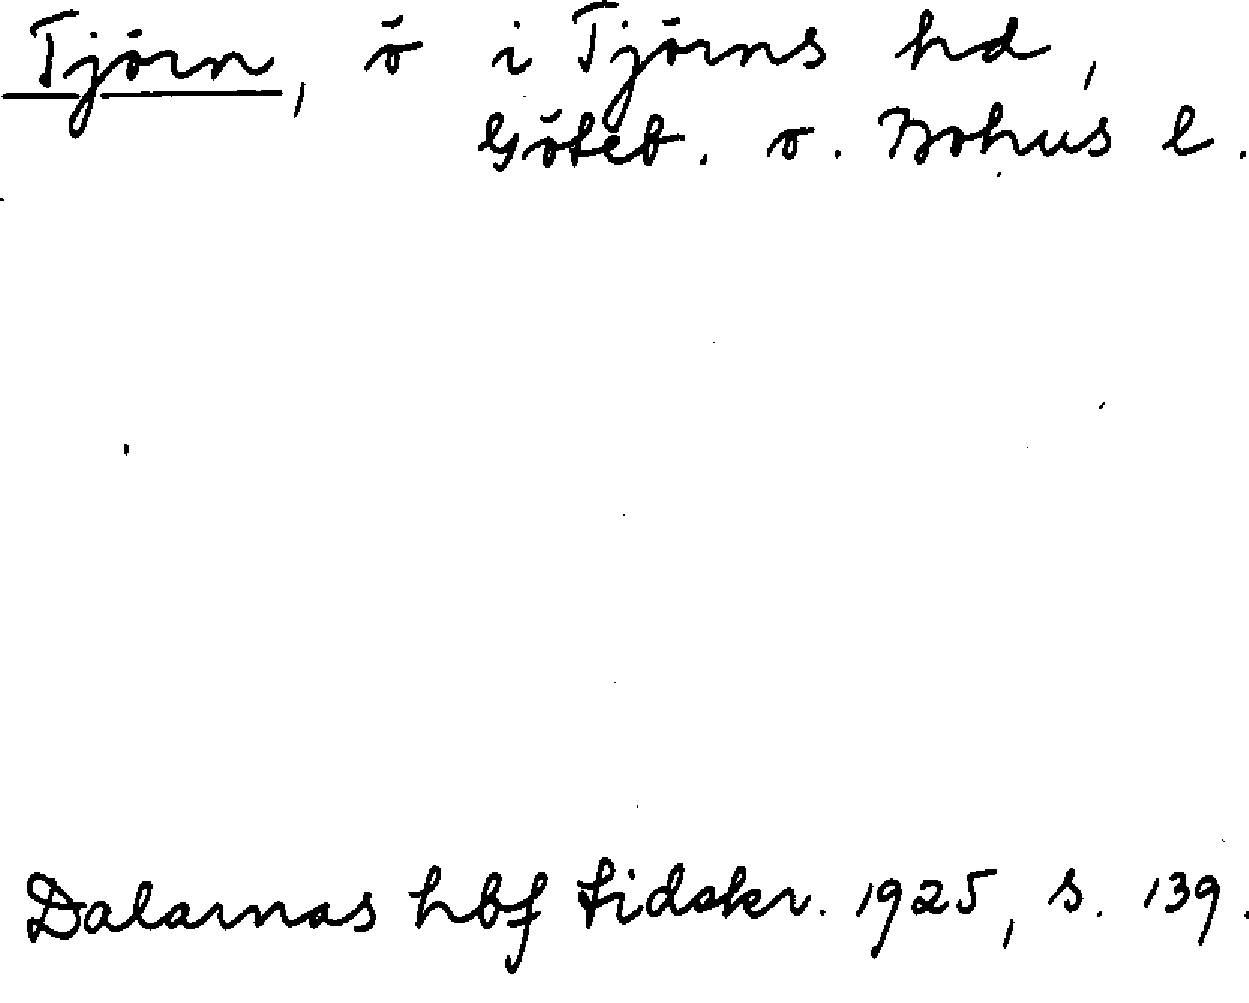 Tjörn, ö i Tjörns hd,
Göteb. o. Bohus l.
Dalarnas hbf tidskr. 1925, s. 139.